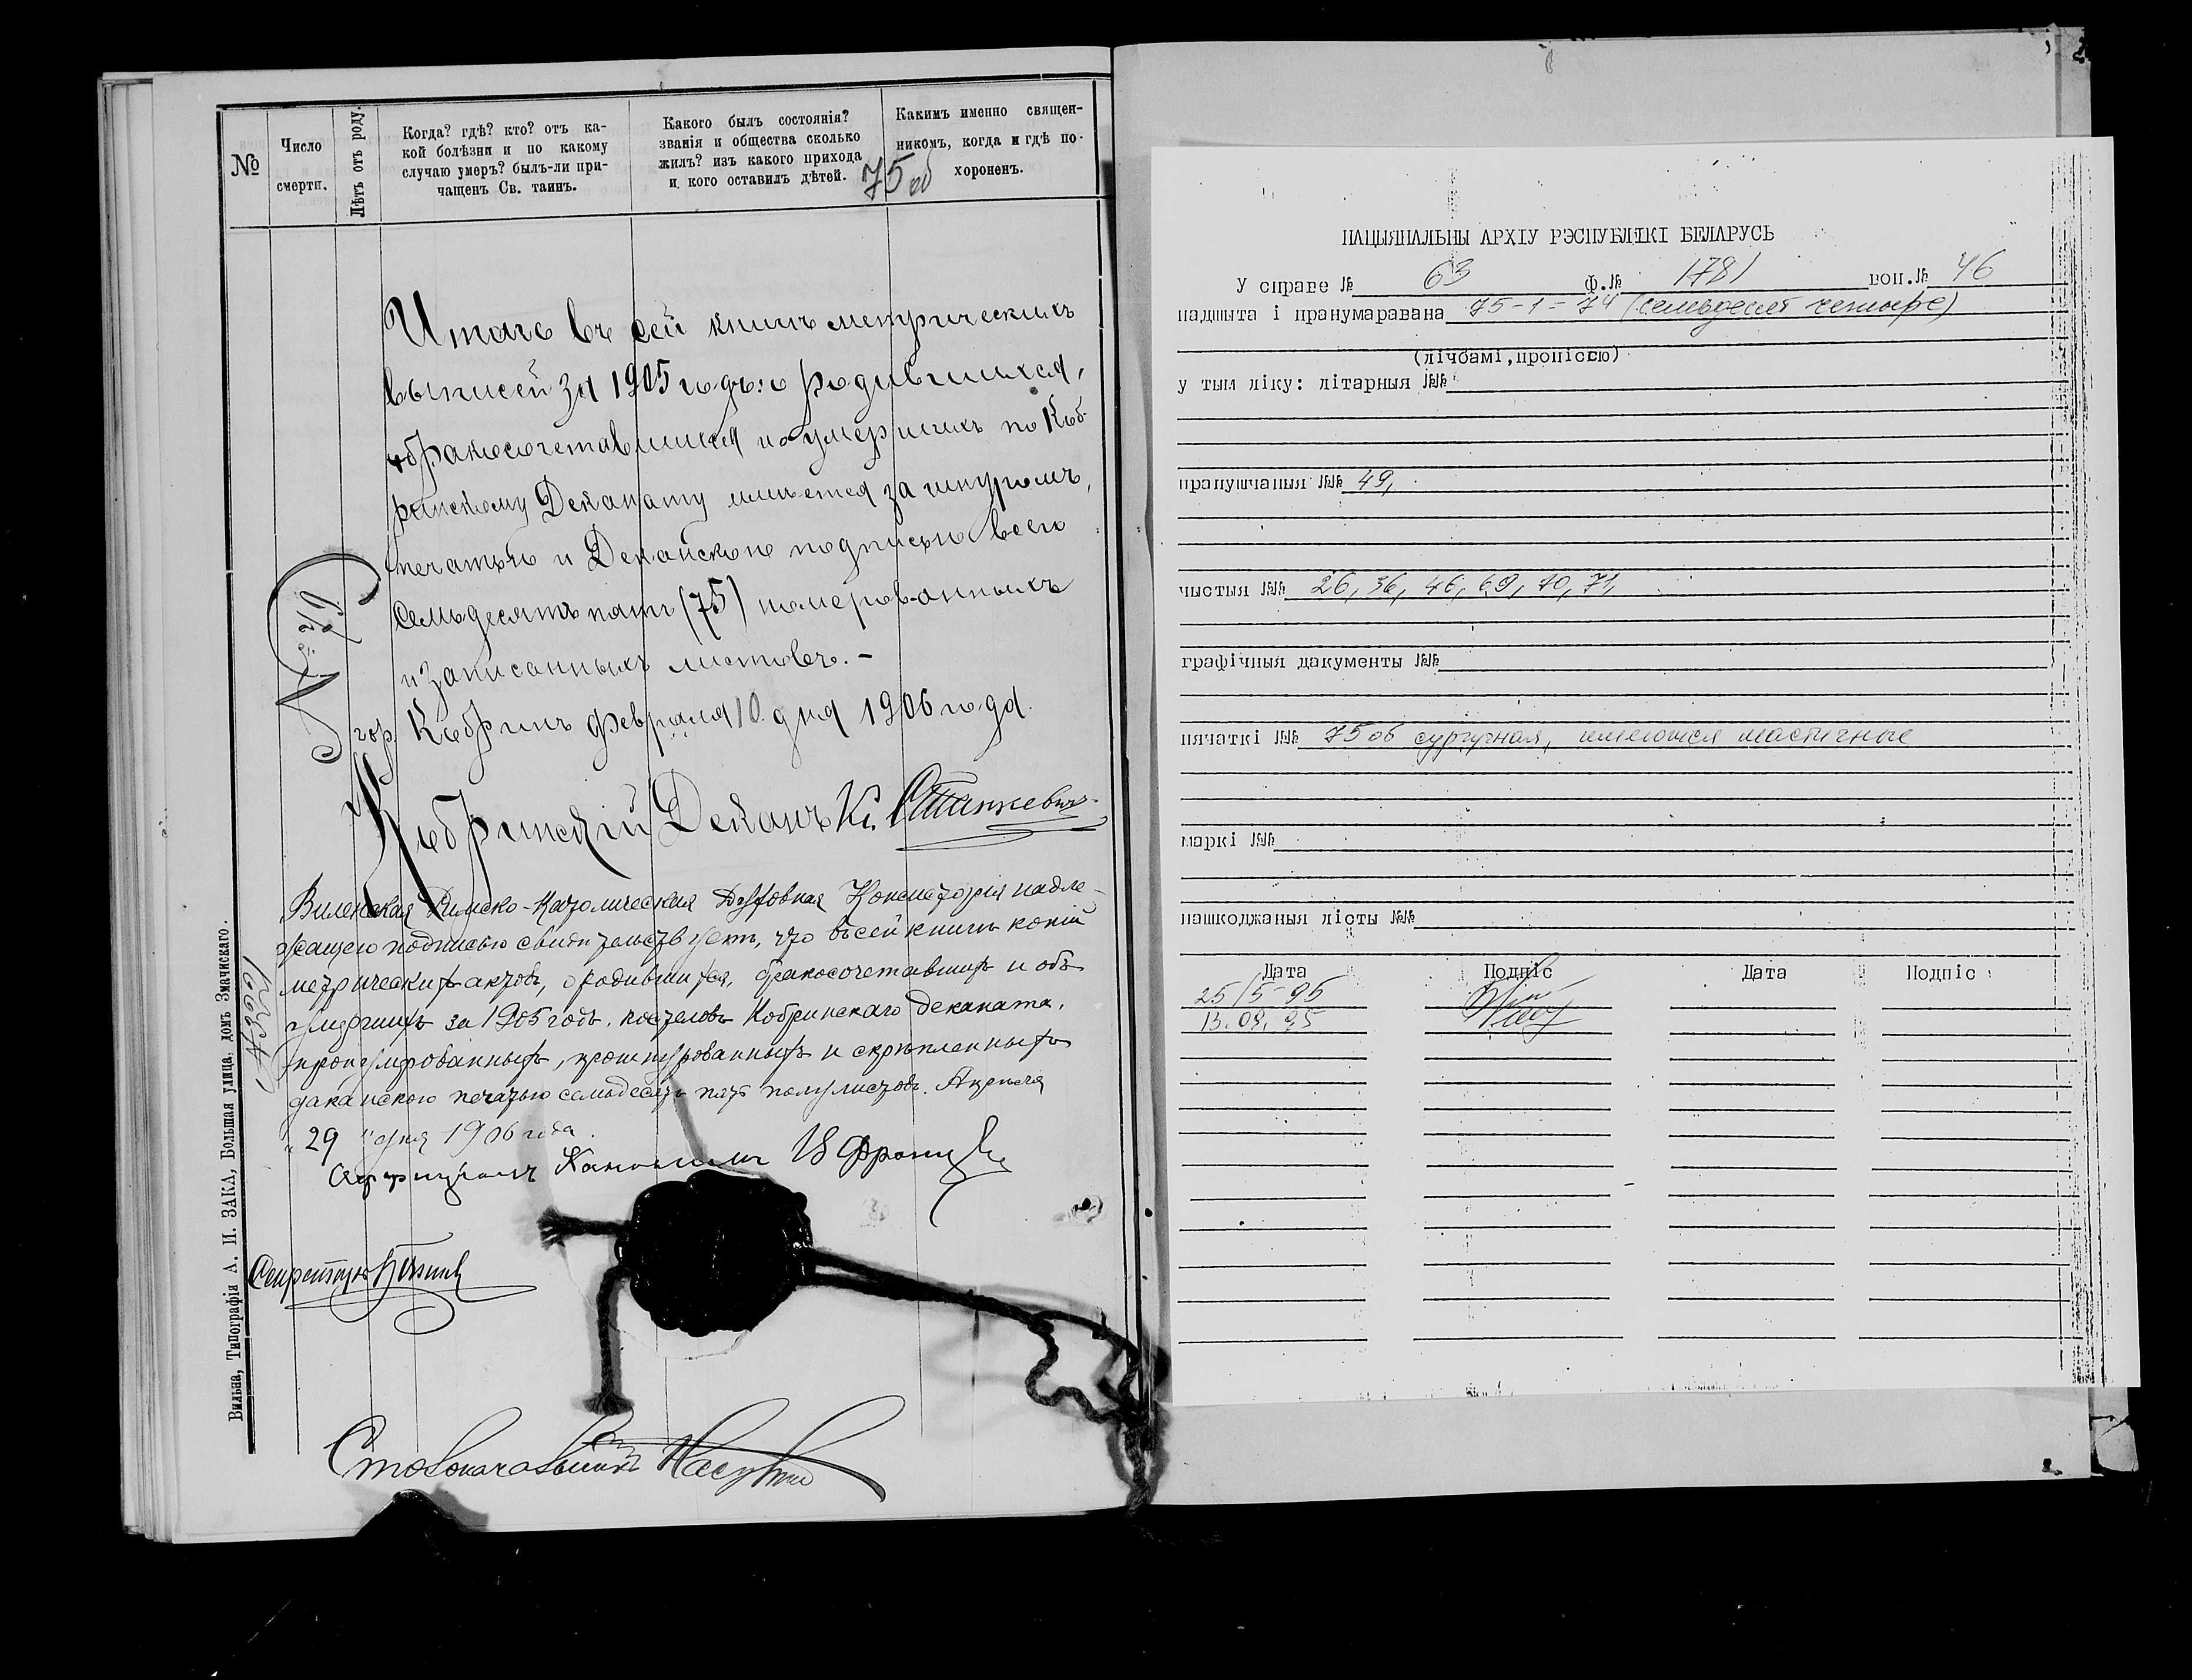 №
Число
смерти.
Лѣтъ отъ роду.
Когда? гдѣ? кто? отъ ка-
кой болѣзни и по какому
случаю умеръ? былъ-ли при-
чащенъ Св. таинъ.
Какого былъ состоянія?
званія и общества сколько
жилъ? изъ какого прихода
и кого оставилъ дѣтей.
Какимъ именно священ-
никомъ, когда и гдѣ по-
хороненъ.
75об
Итого въ сей книгѣ метрическихъ
выписей за 1905 годъ: о родившихся,
бракосочетавшихся и о умершихъ по Коб-
ринскому Деканату имѣется за шнуромъ,
печатью и Деканскою подписью всего
семьдесятъ пять (75) номерованныхъ
и записанныхъ листовъ. –
гор. Кобринъ февраля 10 дня 1906 года.
Кобринскій Деканъ Кс. Станкевичъ
Виленская Римско-Католическая Духовная Консисторія надле-
жащею подписью свидѣтельствуетъ, что въ сей книгѣ копій
метрическихъ актовъ, о родившихся, бракосочетавшихъ и объ
умершихъ за 1905 годъ, костеловъ Кобринскаго деканата,
пронумрованныхъ, прошнурованныхъ и скрѣпленныхъ
деканскою печатью семьдесятъ пять полулистовъ. Апрѣля
„29" дня 1906 года
Секретарь
Столоначальникъ
Вильна, Типографія А. И. ЗАКА, Большая улица, домъ Значискаго.
НАЦЫЯНАЛЬНЫ АРХІУ РЭСПУБЛІКІ БЕЛАРУСЬ
У справе № 63 ф.№ 1781 воп.№ 46
падшыта і пранумаравана 75-1=74 (семьдесят четыре)
(лічбамі,пропіссю)
у тым ліку: літарныя №№
прапушчаныя №№ 49,
чыстыя №№ 26, 36, 46, 69, 70, 71,
графічныя дакументы №№
пячаткі №№ 75об сургучная, имеются мастичные
маркі №№
пашкоджаныя лісты №№
Дата Подпіс Дата Подпіс
25/5-95
13.09.95